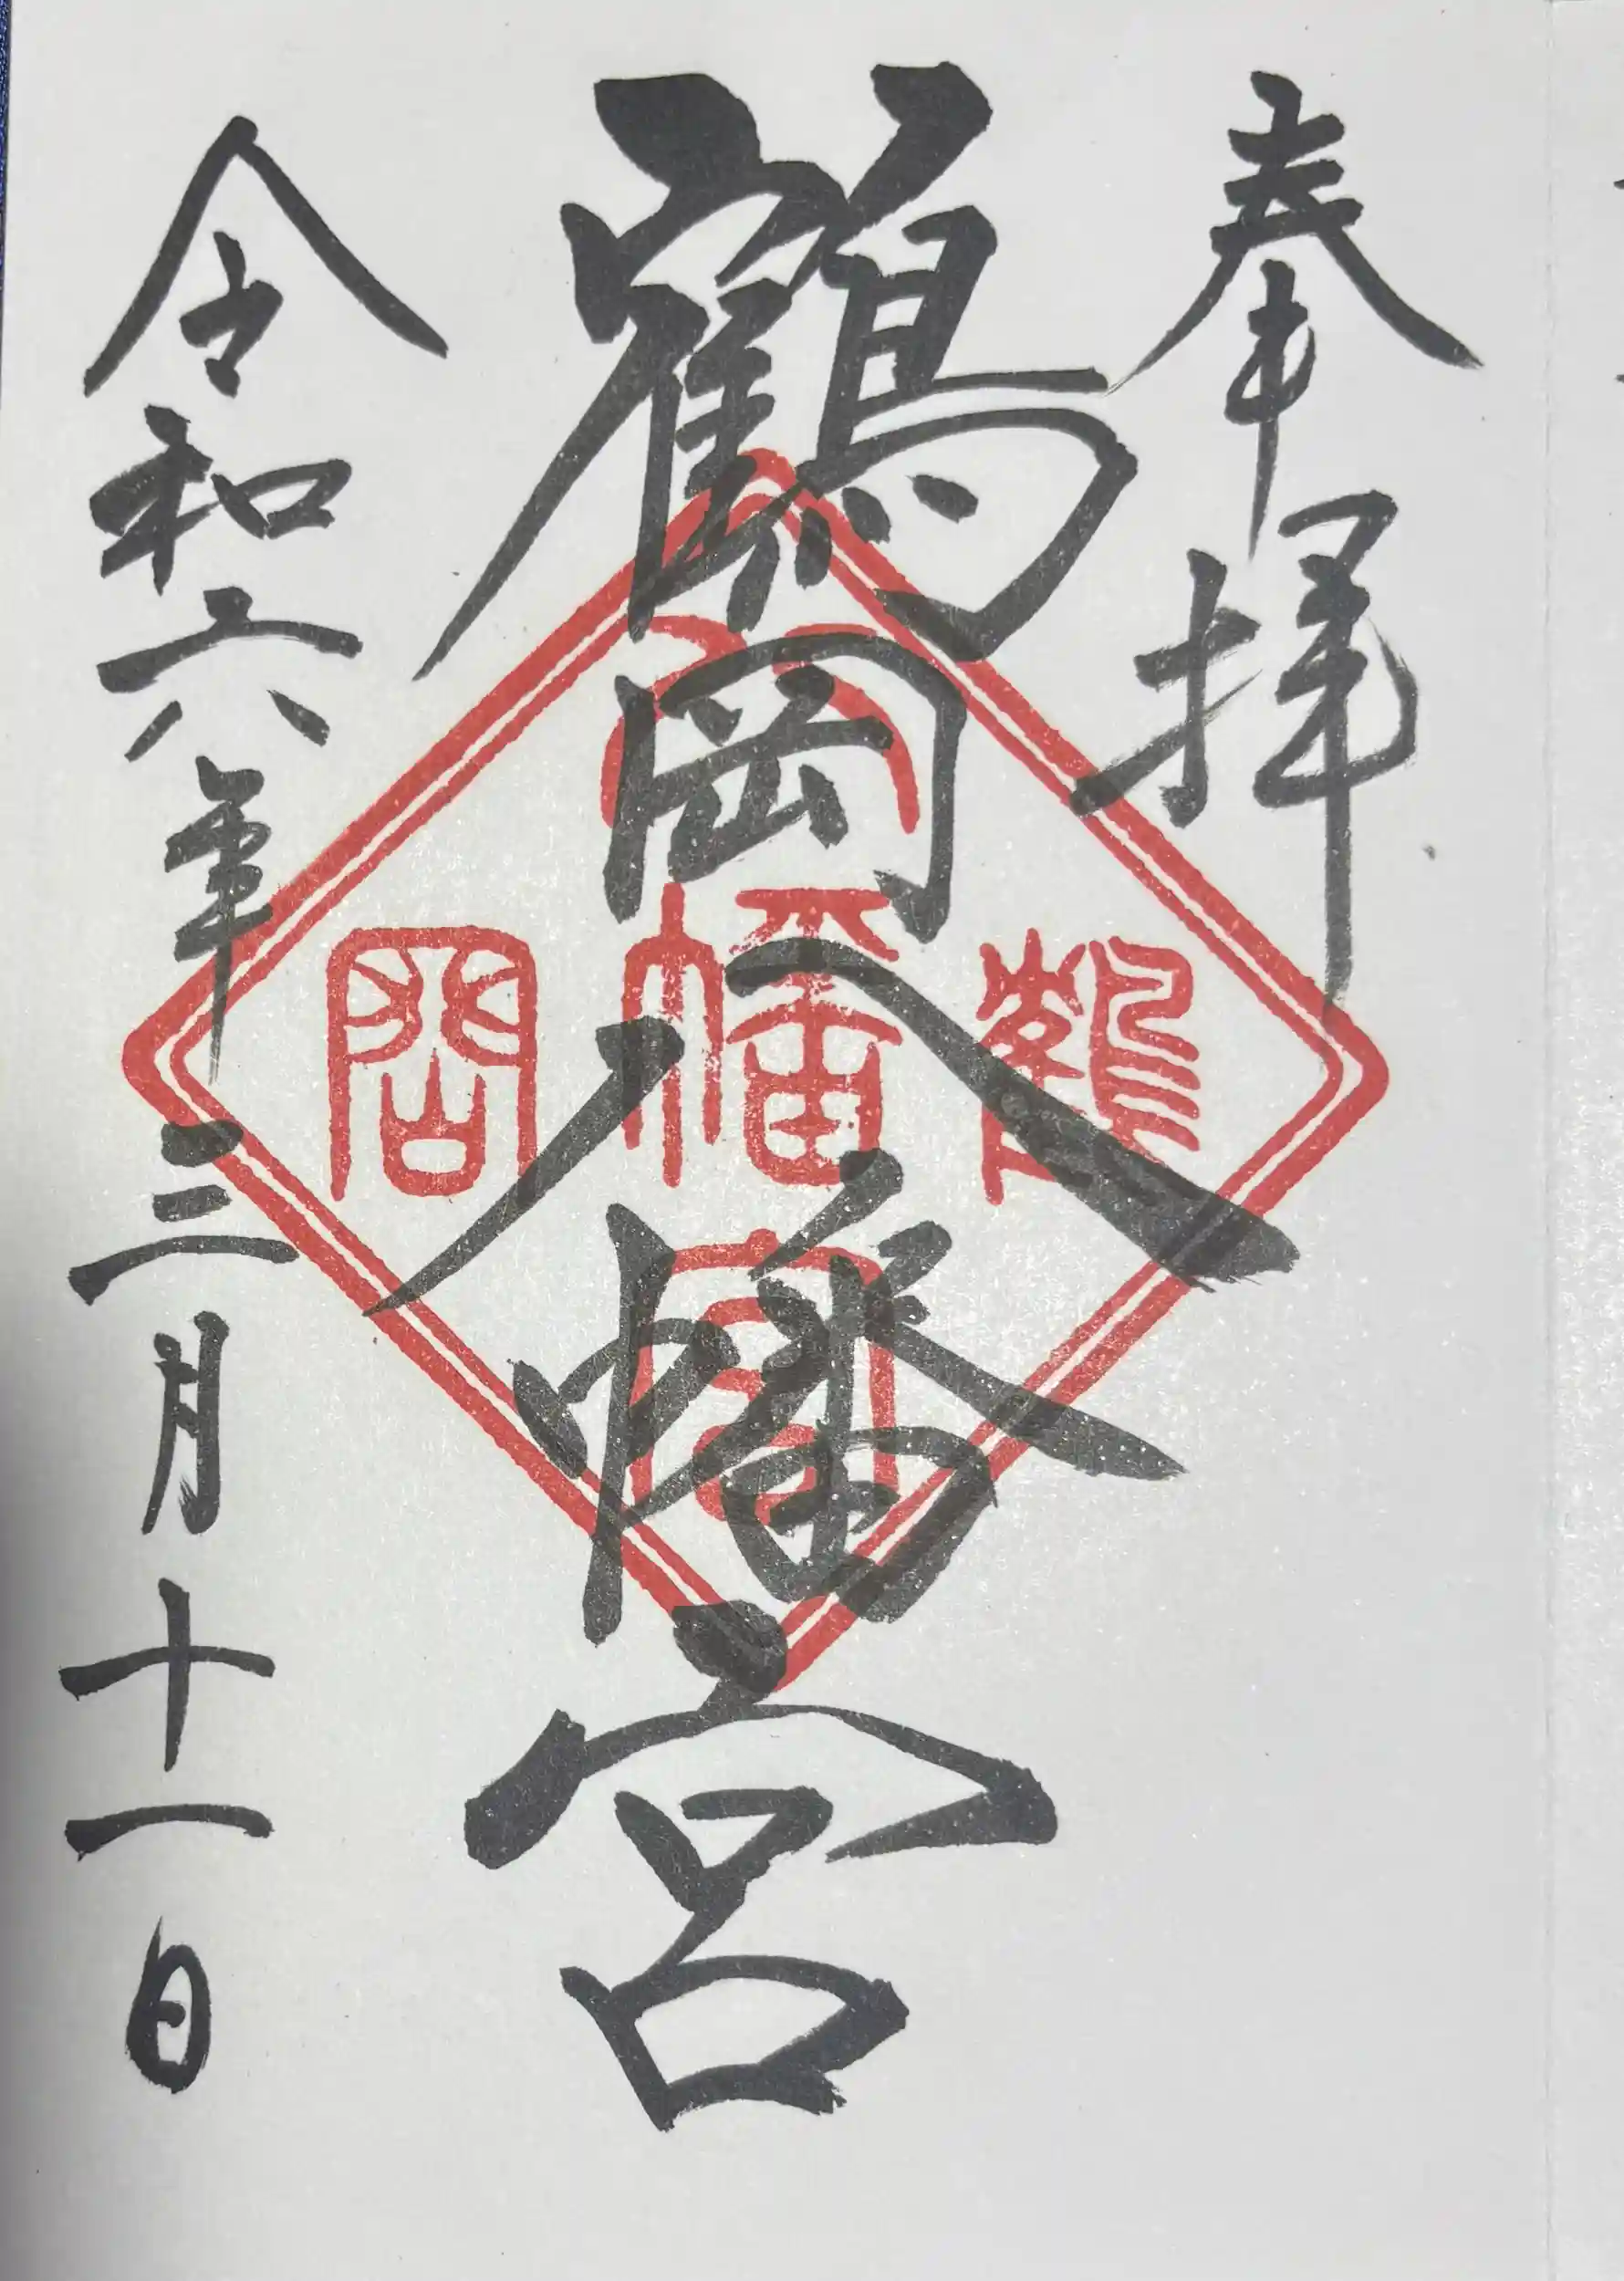 奉拝
鶴岡八幡宮
令和六年三月十一日
八
鶴幡岡
宮